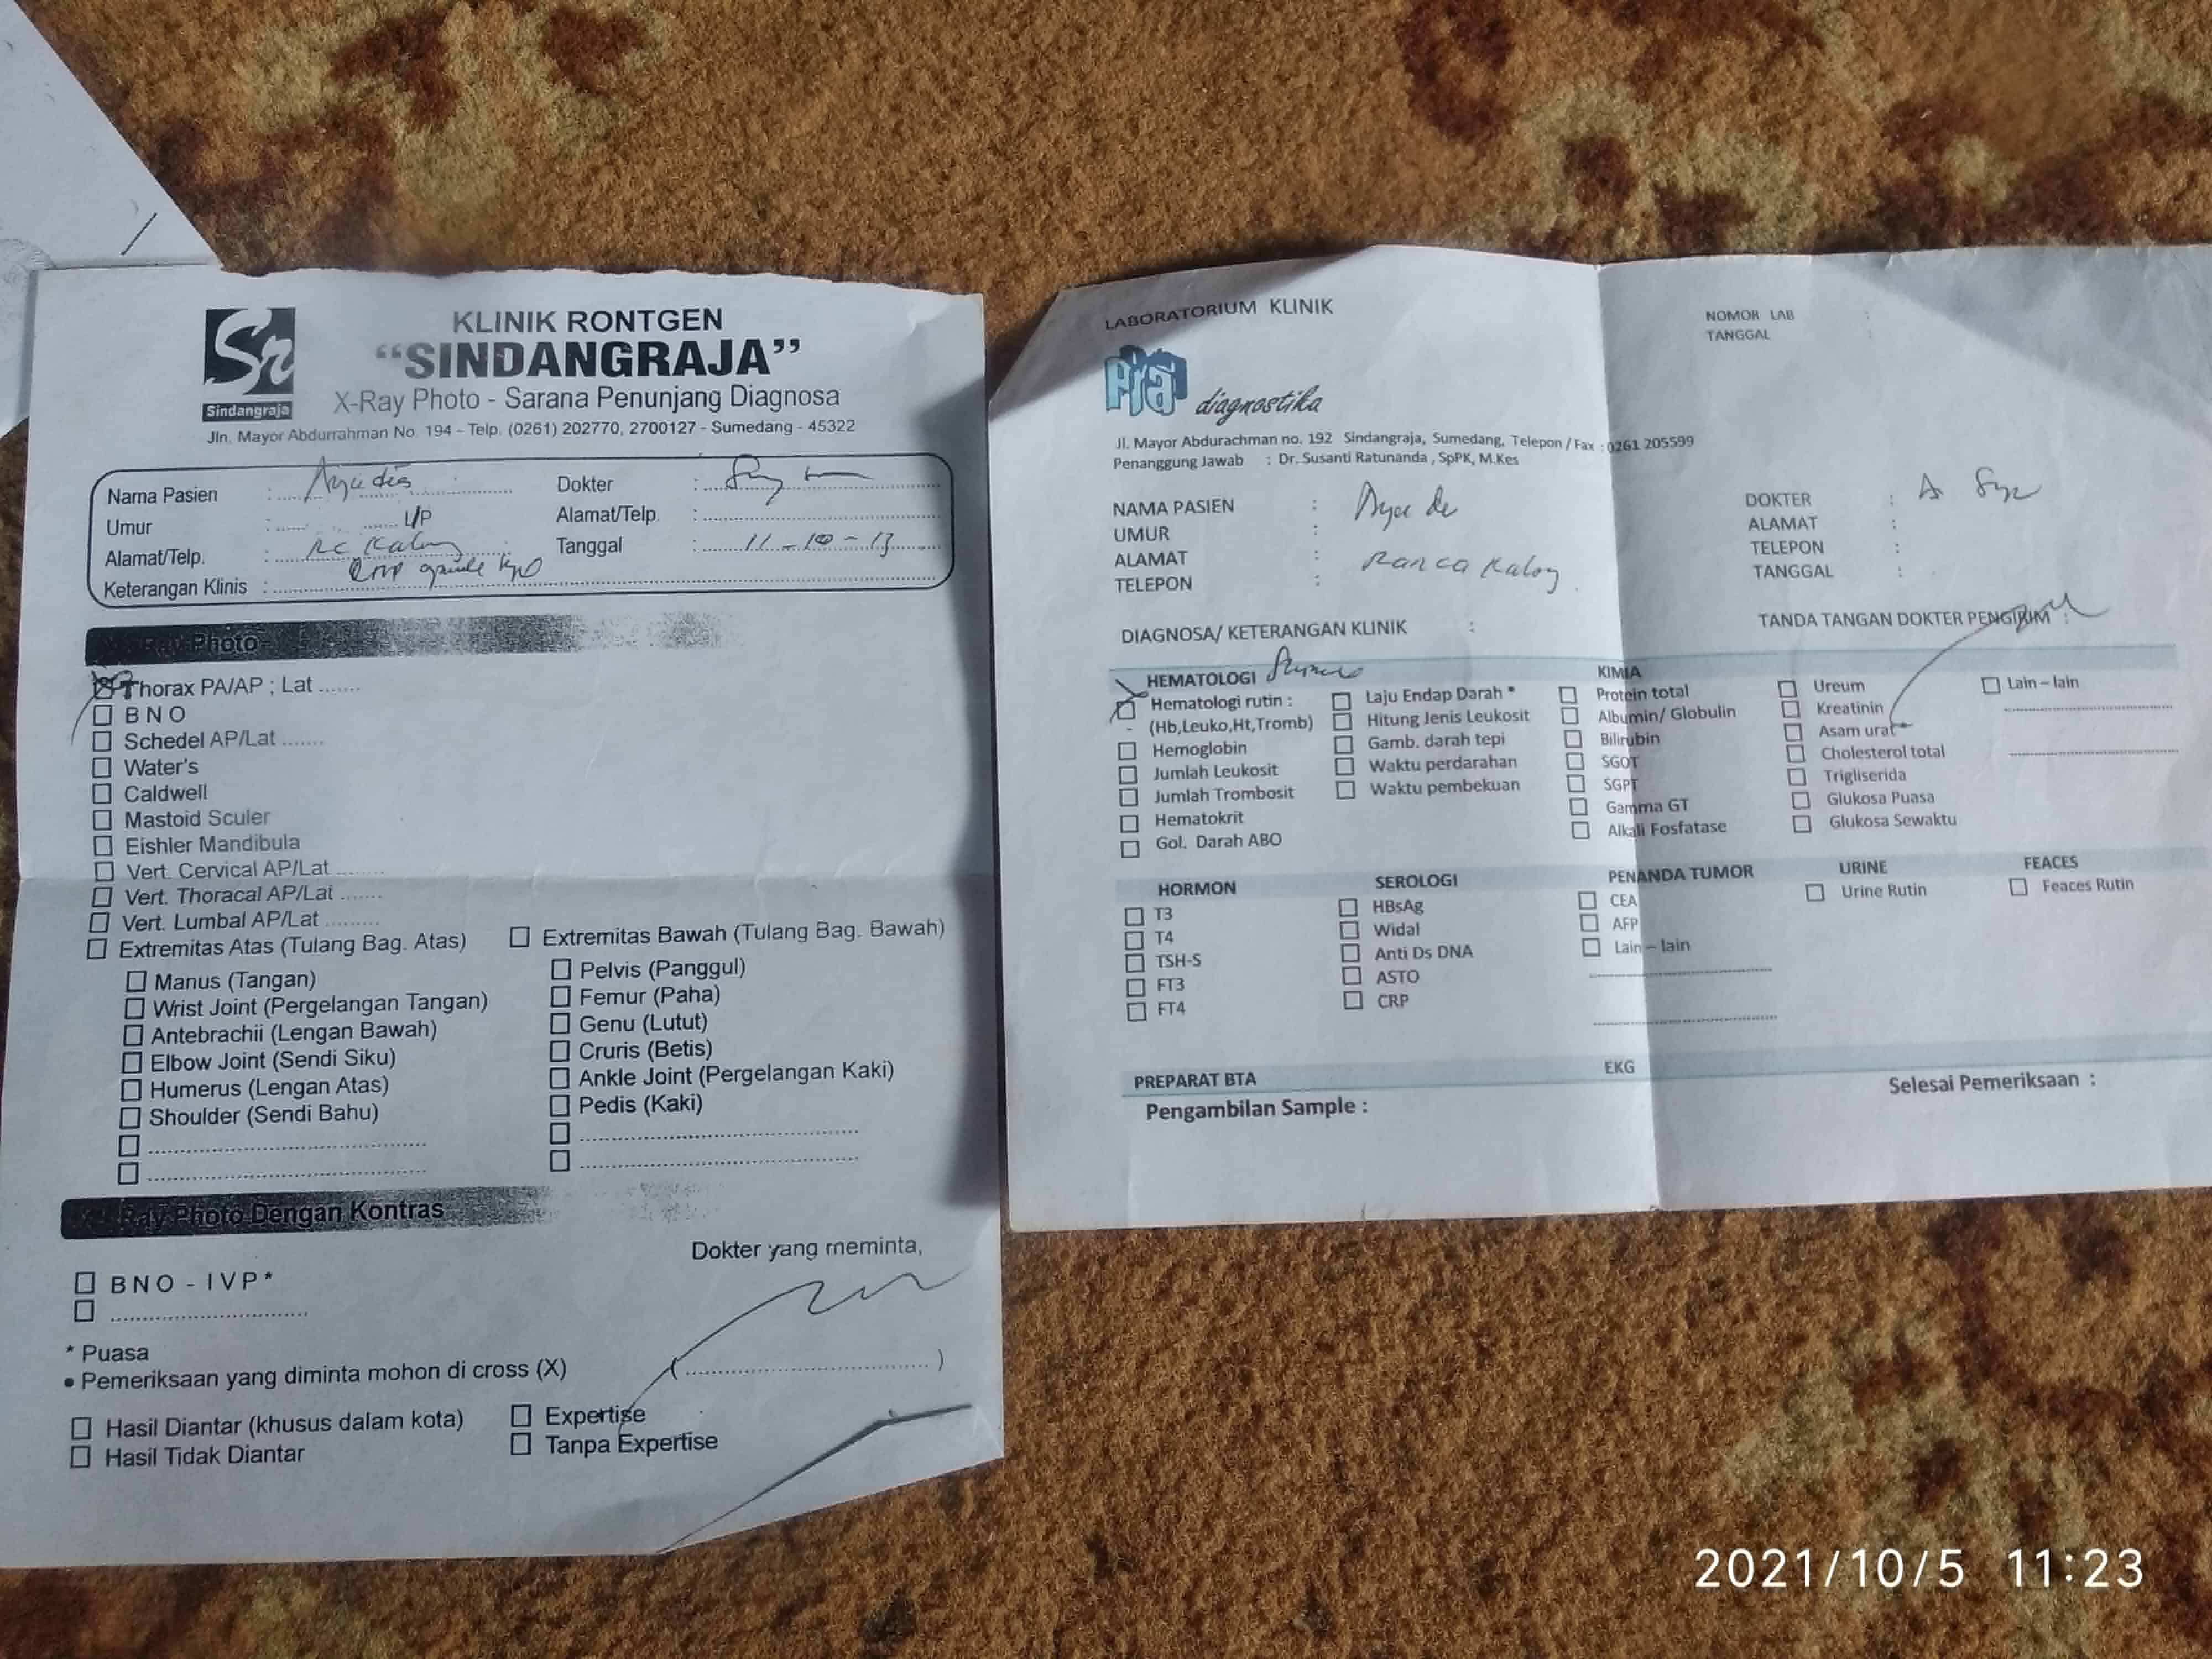 KLINIK RONTGEN
“SINDANGRAJA”
X-Ray Photo - Sarana Penunjang Diagnosa
Sr
Sindangraja
Jln. Mayor Abdurrahman No. 194 - Telp. (0261) 202770, 2700127 - Sumedang - 45322
Nama Pasien :
Dokter :
Umur : L/P
Alamat/Telp. :
Alamat/Telp. :
Tanggal : 11-10-13
Keterangan Klinis :
Ray Photo
Thorax PA/AP ; Lat .......
B N O
Schedel AP/Lat .......
Water's
Caldwell
Mastoid Sculer
Eishler Mandibula
Vert. Cervical AP/Lat ........
Vert. Thoracal AP/Lat .......
Vert. Lumbal AP/Lat .........
Extremitas Atas (Tulang Bag. Atas)
Manus (Tangan)
Wrist Joint (Pergelangan Tangan)
Antebrachii (Lengan Bawah)
Elbow Joint (Sendi Siku)
Humerus (Lengan Atas)
Shoulder (Sendi Bahu)
Extremitas Bawah (Tulang Bag. Bawah)
Pelvis (Panggul)
Femur (Paha)
Genu (Lutut)
Cruris (Betis)
Ankle Joint (Pergelangan Kaki)
Pedis (Kaki)
Ray Photo Dengan Kontras
B N O - I V P *
Dokter yang meminta,
* Puasa
• Pemeriksaan yang diminta mohon di cross (X)
Hasil Diantar (khusus dalam kota)
Hasil Tidak Diantar
Expertise
Tanpa Expertise
LABORATORIUM KLINIK
NOMOR LAB :
TANGGAL :
diagnostika
Jl. Mayor Abdurachman no. 192 Sindangraja, Sumedang, Telepon / Fax : 0261 205599
Penanggung Jawab : Dr. Susanti Ratunanda , SpPK, M.Kes
NAMA PASIEN :
UMUR :
ALAMAT : Ranca Kalong
TELEPON :
DOKTER :
ALAMAT :
TELEPON :
TANGGAL :
DIAGNOSA/ KETERANGAN KLINIK :
TANDA TANGAN DOKTER PENGIRIM :
HEMATOLOGI
Hematologi rutin :
(Hb,Leuko,Ht,Tromb)
Hemoglobin
Jumlah Leukosit
Jumlah Trombosit
Hematokrit
Gol. Darah ABO
Laju Endap Darah *
Hitung Jenis Leukosit
Gamb. darah tepi
Waktu perdarahan
Waktu pembekuan
KIMIA
Protein total
Albumin/ Globulin
Bilirubin
SGOT
SGPT
Gamma GT
Alkali Fosfatase
Ureum
Kreatinin
Asam urat
Cholesterol total
Trigliserida
Glukosa Puasa
Glukosa Sewaktu
Lain – lain
HORMON
T3
T4
TSH-S
FT3
FT4
SEROLOGI
HBsAg
Widal
Anti Ds DNA
ASTO
CRP
PENANDA TUMOR
CEA
AFP
Lain – lain
URINE
Urine Rutin
FEACES
Feaces Rutin
PREPARAT BTA
EKG
Pengambilan Sample :
Selesai Pemeriksaan :
2021/10/5 11:23